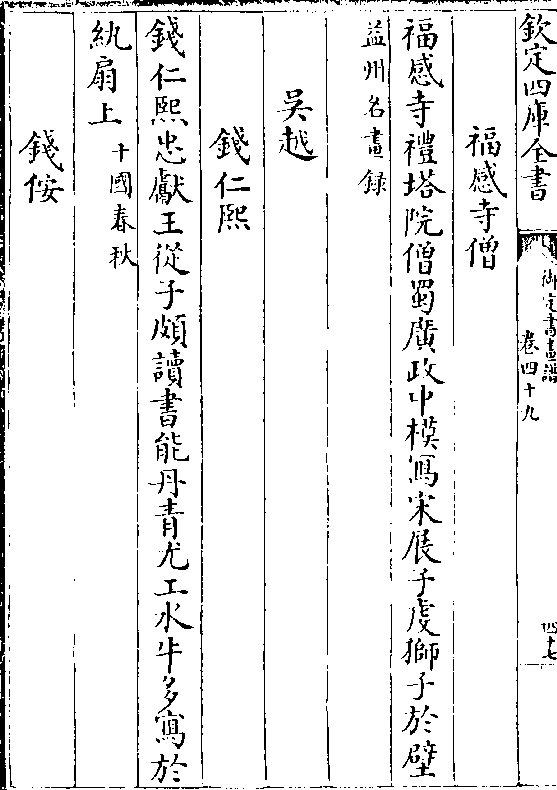 欽定四庫全書
御定書畫譜
卷四十九
四十七
福感寺僧
福感寺禮塔院僧蜀廣政中模寫宋展子虔獅子於壁
益州名畫錄
吳越
錢仁熙
錢仁熙忠獻王從子頗讀書能丹青尤工水牛多寫於
紈扇上十國春秋
錢侒